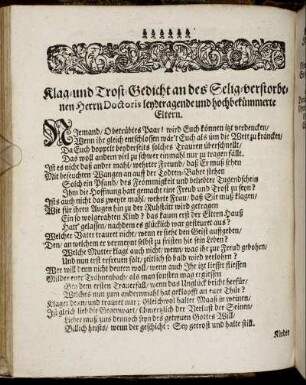 Klag/und Trost-Gedicht an des Selig-verstorbe-
nen Herrn Doctoris leydtragende und hochbekümmerte
Eltern.
NJemand/ Obetrübtes Paar! wird Euch können itzt verdencken/
Wenn ihr gleich entschlossen wär't Euch als um die Wett zu kräncken/
Da Euch doppelt beyderseits solches Trauren überschnellt/
Das wol andern viel zu schwer einmahl nur zu tragen fällt.
Ist es nicht das andre mahl/ wehrter Freund/ daß Er muß sehen
Mit befeuchten Wangen an auff der Todten-Bahre stehen
Solch ein Pfand/ des Frömmigkeit und beliebter Tugendschein
Ihm die Hoffnung hatt gemacht
Ists auch nicht das zweyte mahl/ wehrte Frau/ daß Sie muß klagen/
Wie für ihren Augen hin zu der Ruhstätt wird getragen
Ein so wolgerahtern Kind? das kaum erst der Eltern Hauß
Hatt' gelassen/ nachdem es glücklich war gesteuret aus?
Welcher Vater trauret nicht/ wenn er siehet den Geist auffgeben/
Den/ an welchem er vermeynt selbst zu frischen hie sein Leben?
Welche Mutter klagt auch nicht/ wenn/ was ihr zur Freud gebohren/
Und nun erst recht ausgeht/ plötzlich so bald wird verlohren?
Wer will denn nicht deuten woll/ wenn auch Ihr itzt liesset fliessen
Milder eure Trähnenbach/ als man sonsten mag ergiessen
Bey dem ersten Trauerfall/ wenn das Unglück bricht herfür/
Welches nun zum andernmahl hat geklopfft an eure Thür?
Klaget denn/ und trauret nur; Gleichwol haltet Maaß im weinen/
Ist gleich lieb die Gegenwart/ schmertzlich der Verlust der Seinen/
Lieber muß uns dennoch seyn des getreuen Gottes Will/
Billich heists/ wenn der geschieht: Sey getrost und halte still.